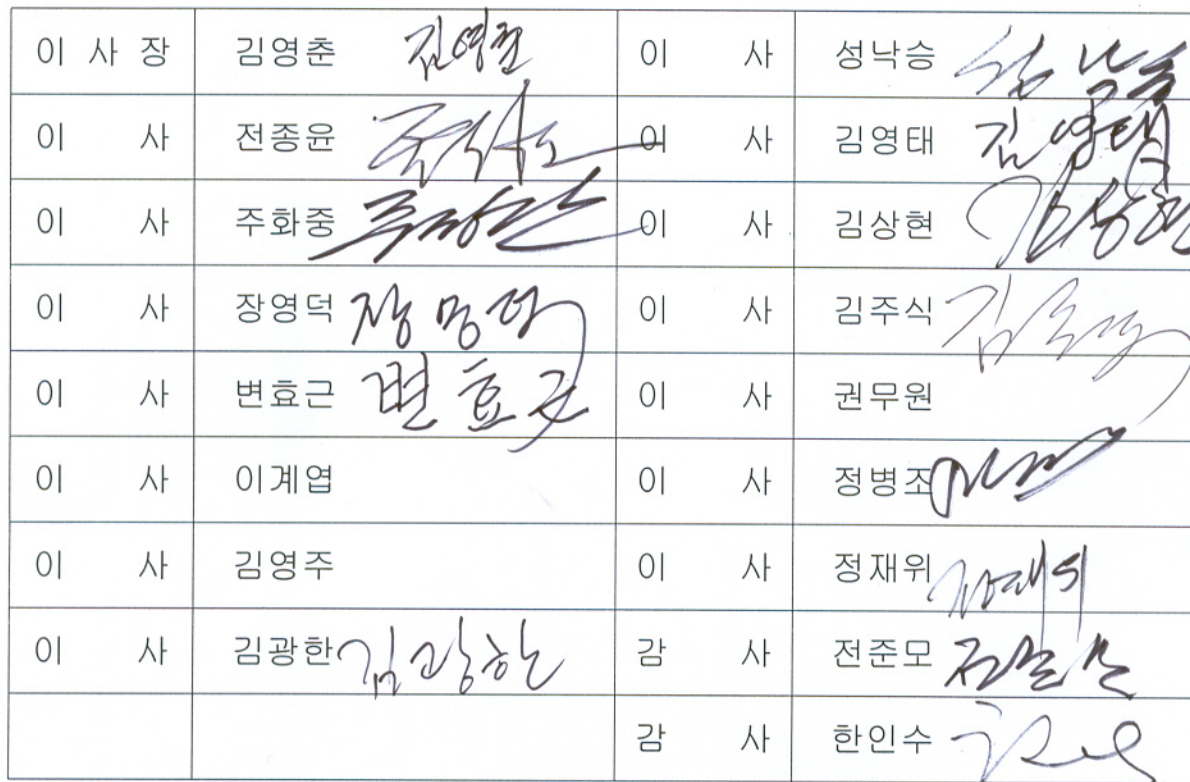 이 사 장 김영춘 김영춘 이 사 성낙승 성낙승
이 사 전종윤 이 사 김영태 김영태
이 사 주화중 이 사 김상현 김상현
이 사 장영덕 장영덕 이 사 김주식 김주식
이 사 변효근 변효근 이 사 권무원
이 사 이계엽 이 사 정병조
이 사 김영주 이 사 정재위 정재위
이 사 김광한 김광한 감 사 전준모
감 사 한인수